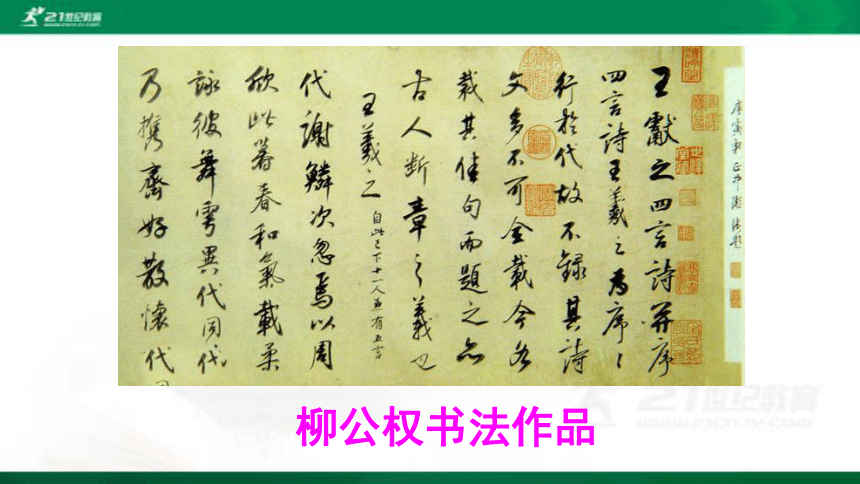 21世纪教育
王獻之四言詩并序
四言詩王羲之為序〻
行於代故不錄其詩
文多不可全載今各
裁其佳句而題之亦
古人断章之義也
王羲之 自此已下十一人兼有五言
代謝鱗次忽焉以周
欣此暮春和氣載柔
詠彼舞雩異代同流
乃攜齊好散懷一丘
21世纪教育
柳公权书法作品